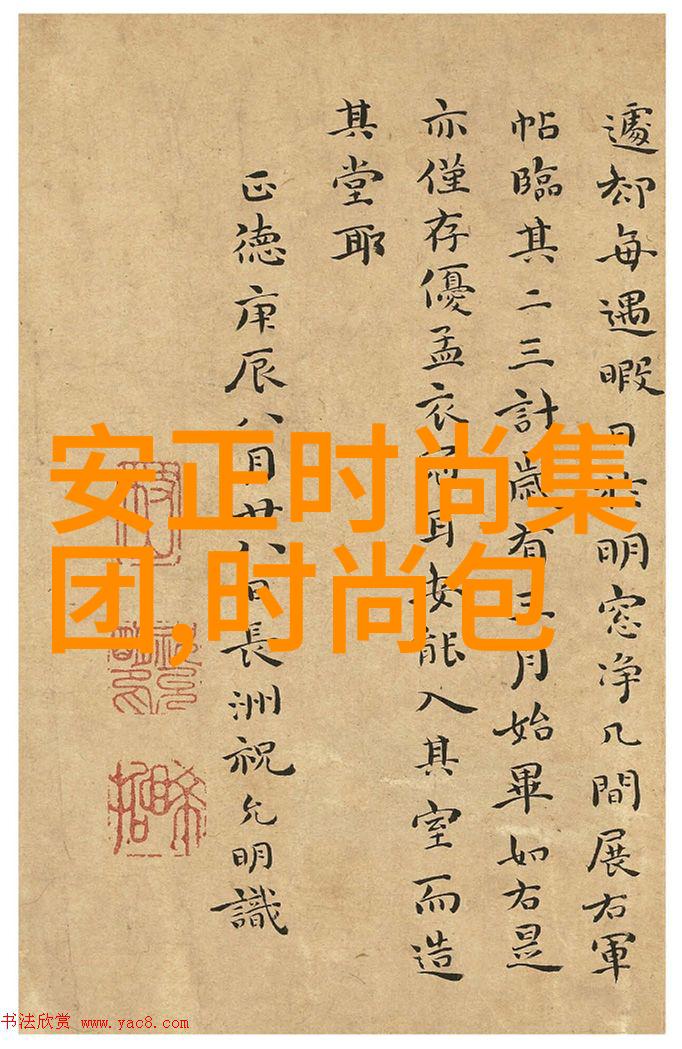 遽却每遇暇日於明窓净几間展右軍
帖臨其二三計歲有三月始畢如右是
亦僅存優孟衣冠耳安能入其室而造
其堂耶
正德庚辰八月廿八日長洲祝允明識
安正时尚集
团,时尚包
书法欣赏 www.yac8.com